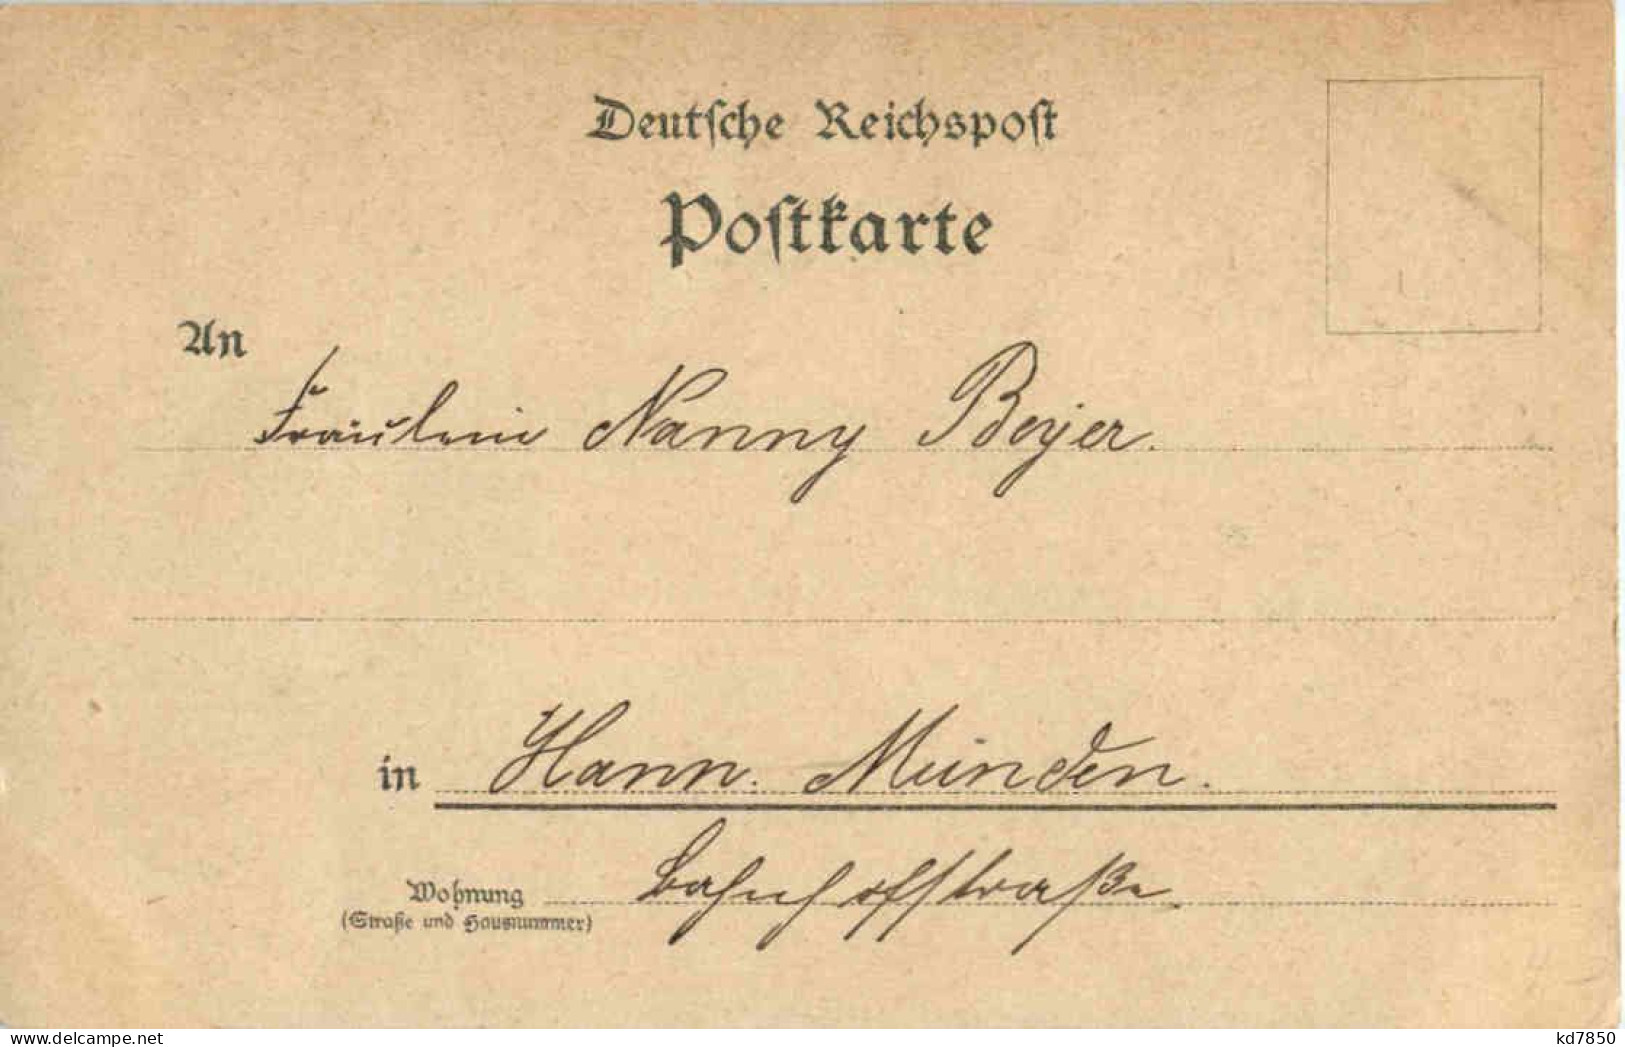 Deutsche Reichspost
Postkarte
An
Fräulein Nanny Beyer.
in Hann. Münden.
Wohnung Bahnhofstraße.
(Straße und Hausnummer)
kd7850